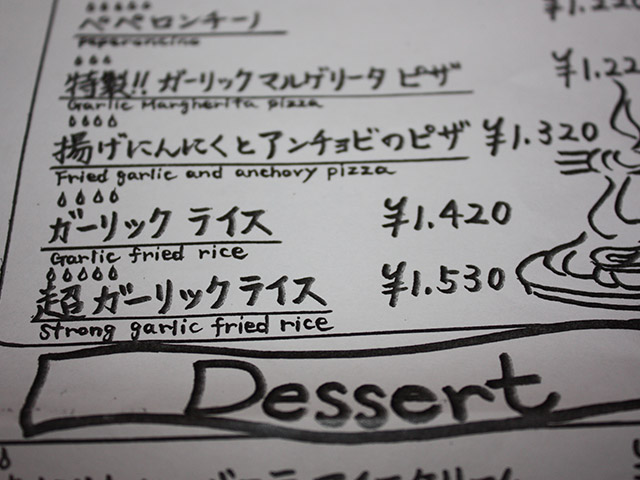 ペペロンチーノ
Peperoncino
特製!! ガーリック マルゲリータ ピザ ¥1.22
Garlic Margherita pizza
揚げにんにくとアンチョビのピザ ¥1.320
Fried garlic and anchovy pizza
ガーリック ライス ¥1.420
Garlic fried rice
超ガーリックライス ¥1.530
strong garlic fried rice
Dessert